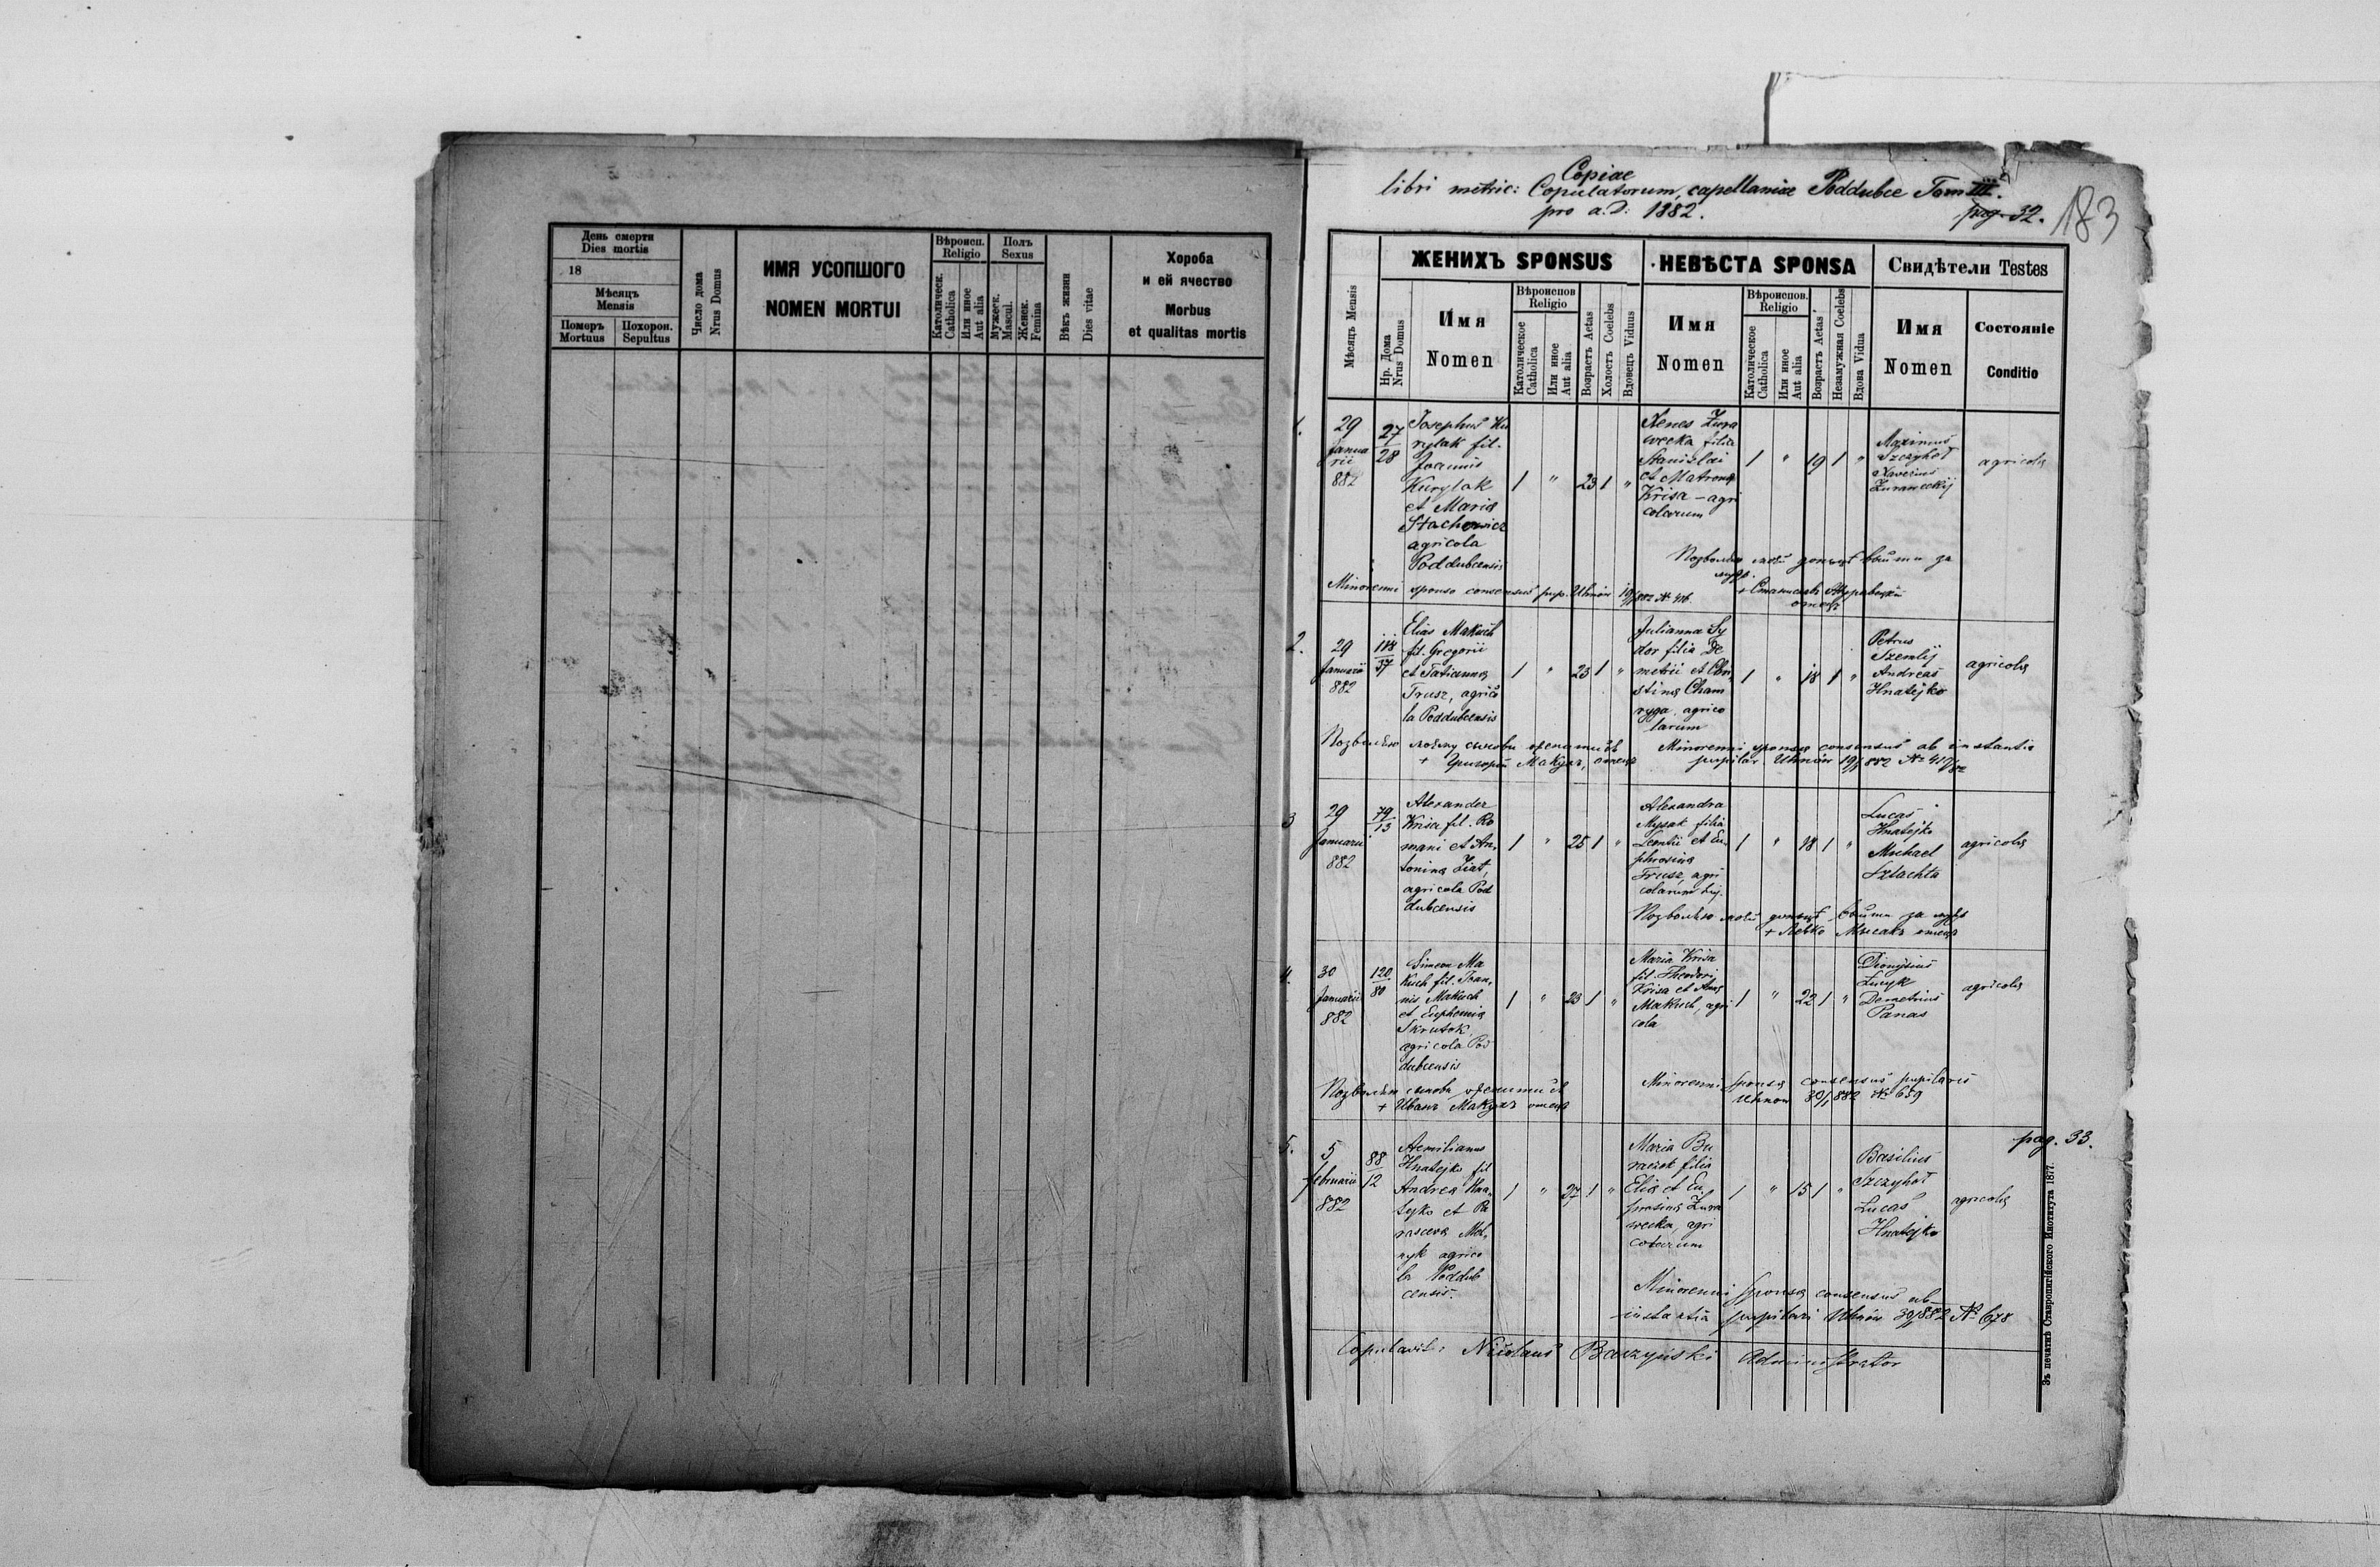 День смерти
Dies mortis
18
Мѣсяцъ
Mensis
Померъ
Mortuus
Похорон.
Sepultus
Число дома
Nrus Domus
ИМЯ УСОПШОГО
NOMEN MORTUI
Вѣроисп.
Religio
Католическ.
Catholica
Или иное
Aut alia
Полъ
Sexus
Мужеск.
Mascul.
Женск.
Femina
Вѣкъ жизни
Dies vitae
Хороба
и ей ячество
Morbus
et qualitas mortis
Copiae
libri metric: Copulatorum, capellaniae Poddubce Tom III.
pro a.d: 1882.
pag. 32.
183
Мѣсяцъ Mensis
Нр. Дома
Nrus Domus
ЖЕНИХЪ SPONSUS
Имя
Nomen
Вѣроиспов
Religio
Католическое
Catholica
Или иное
Aut alia
Возрастъ Aetas
Холостъ Coelebs
Вдовецъ Viduus
НЕВѢСТА SPONSA
Имя
Nomen
Вѣроиспов.
Religio
Католическое
Catholica
Или иное
Aut alia
Возрастъ Aetas
Незамужная Coelebs
Вдова Vidua
Свидѣтели Testes
Имя
Nomen
Состоянiе
Conditio
1.
29
Januarii
882
27
28
Josephus Ku
rylak fil.
Joannis
Kurylak
et Maria
Stachowicz
agricola
Poddubcensis
1 " 23 1 "
Xenes Zura
wecka filia
Stanislai
et Matrona
Krisa - agri
colarum
1 " 19 1 "
Maximus
Szczyhoł
Zuraweckij
agricola
Позволяю моей
Minorenni sponso consensus pup. Uhnów
отецъ
2.
29
Januarii
882
118
37
Elias Makuch
fil. Gregorii
et Tatianna
Trusz, agrico
la Poddubcensis
1 " 23 1 "
Julianna Sy
dor filia De
metrii et Chri
stina Cham
ryga, agrico
larum
1 " 18 1 "
Petrus
Szemlij
Andreas
Hnatejko
agricola
Позволяю моему сынови
+ Григорій Макухъ, отецъ
Minorenni sponsa consensus ab instantia
pupilar Uhnów 19/1 882
3
29
Januarii
882
79
13
Alexander
Krisa fil. Ro
mani et An,
tonina Ziat,
agricola Pod
dubcensis
1 " 25 1 "
Alexandra
Mysak filia
Leontii et Eu,
phrosina
Trusz, agri
colarum
1 " 18 1 "
Lucas
Hnatejko
Michael
Szlachta
agricola
Позволяю моей
+ Левко Мысакъ отецъ
4.
30
Januarii
882
120
80
Simeon Ma
kuch fil. Joan,
nis Makuch
et Euphemia
Skrutok
agricola Pod
dubcensis
1 " 23 1 "
Maria Krisa
fil. Theodori
Krisa et Anna
Makuch, agri
cola
1 " 22 1 "
Dionysius
Łucyk
Demetrius
Panas
agricola
Позволяю сынови
+ Иванъ Макухъ отецъ
Minorenni sponsa consensus pupilaris
Uhnow 30/1 882 № 659
pag. 33.
5.
5
februarii
882
88
12
Aemilianus
Hnatejko fil
Andrea Hna,
tejko et Pa
rasceva Mel,
nyk agrico
la Poddub
censis.
1 " 27 1 "
Maria Bu
raczok filia
Elia et Eu,
frosina Zura
wecka, agri
colarum
1 " 15 1 "
Basilius
Szczyhoł
Lucas
Hnatejko
agricola
Minorenni sponsa consensus ab
instantia pupilari Uhnów 30/1 882 № 678
Copulavit: Nicolaus Baczyński Administrator
Зъ печатнѣ Ставропигійского Института 1877.